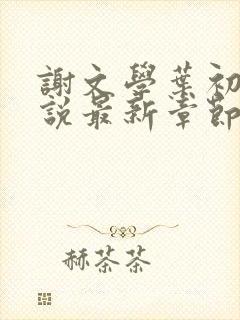 謝文學葉初
說最新章節
赫茶茶